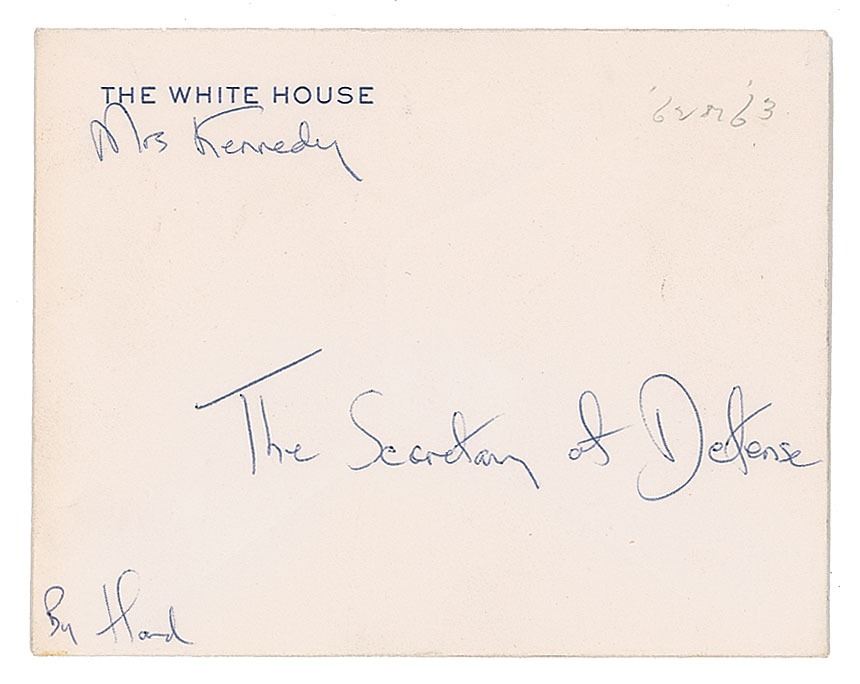 THE WHITE HOUSE
Mrs Kennedy
The Secretary of Defense
By Hand